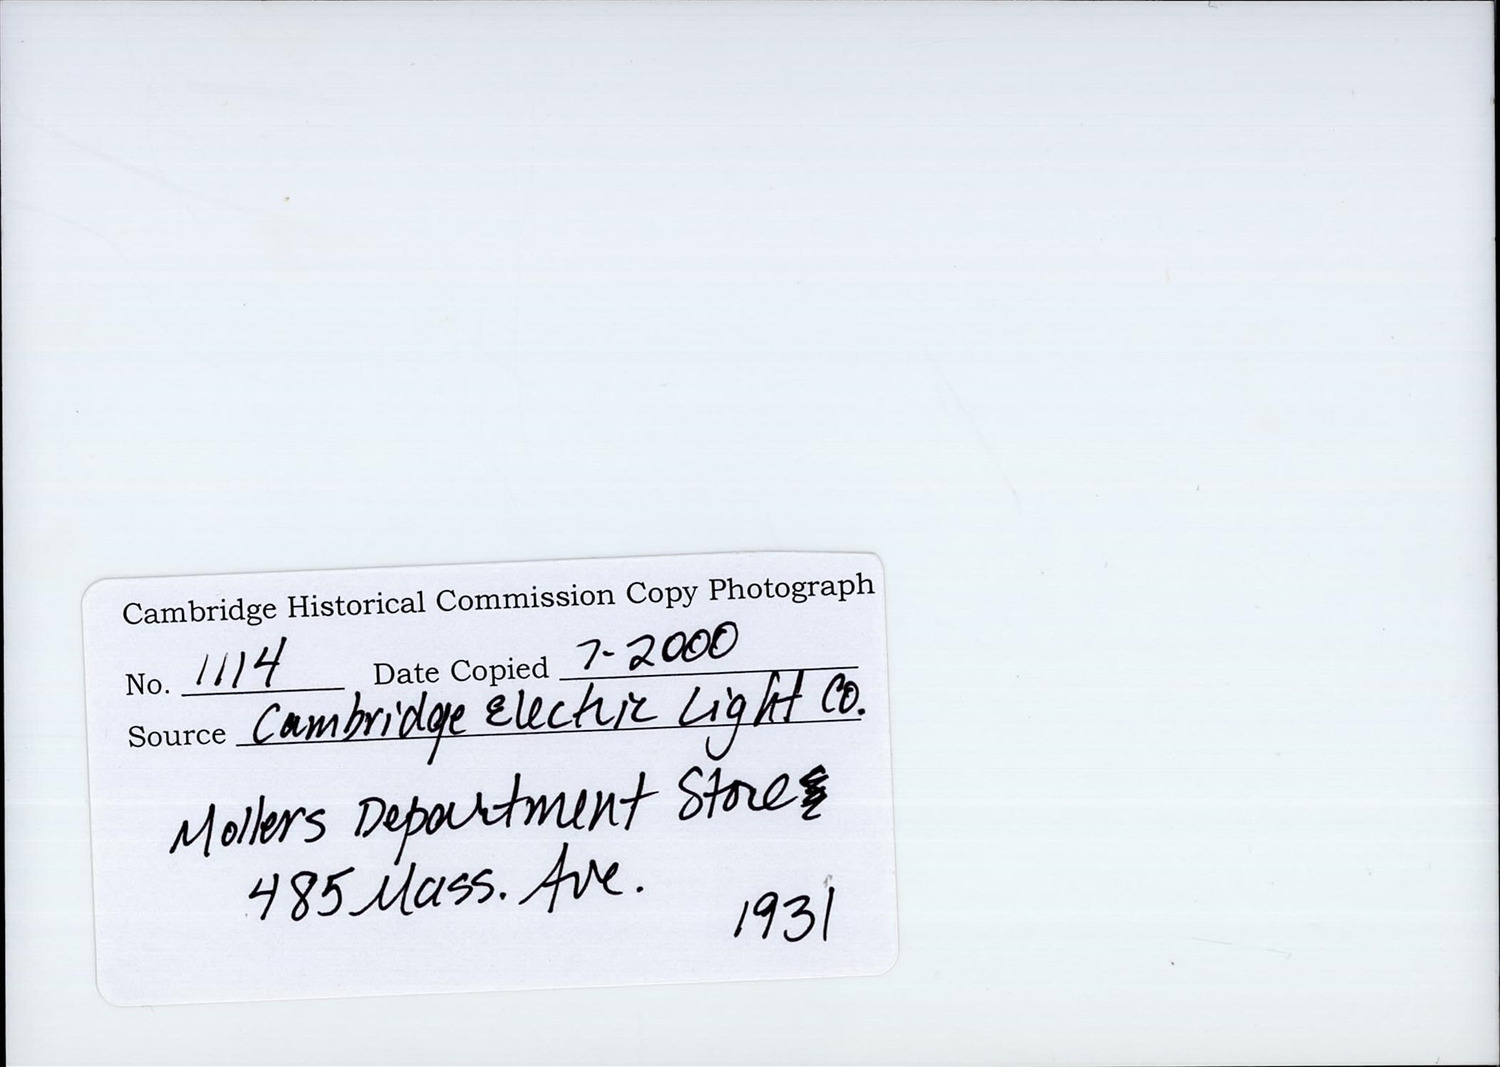 Cambridge Historical Commission Copy Photograph
No. 1114 Date Copied 7-2000
Source Cambridge Electric Light Co.
Mollers Department Store
485 Mass. Ave.
1931